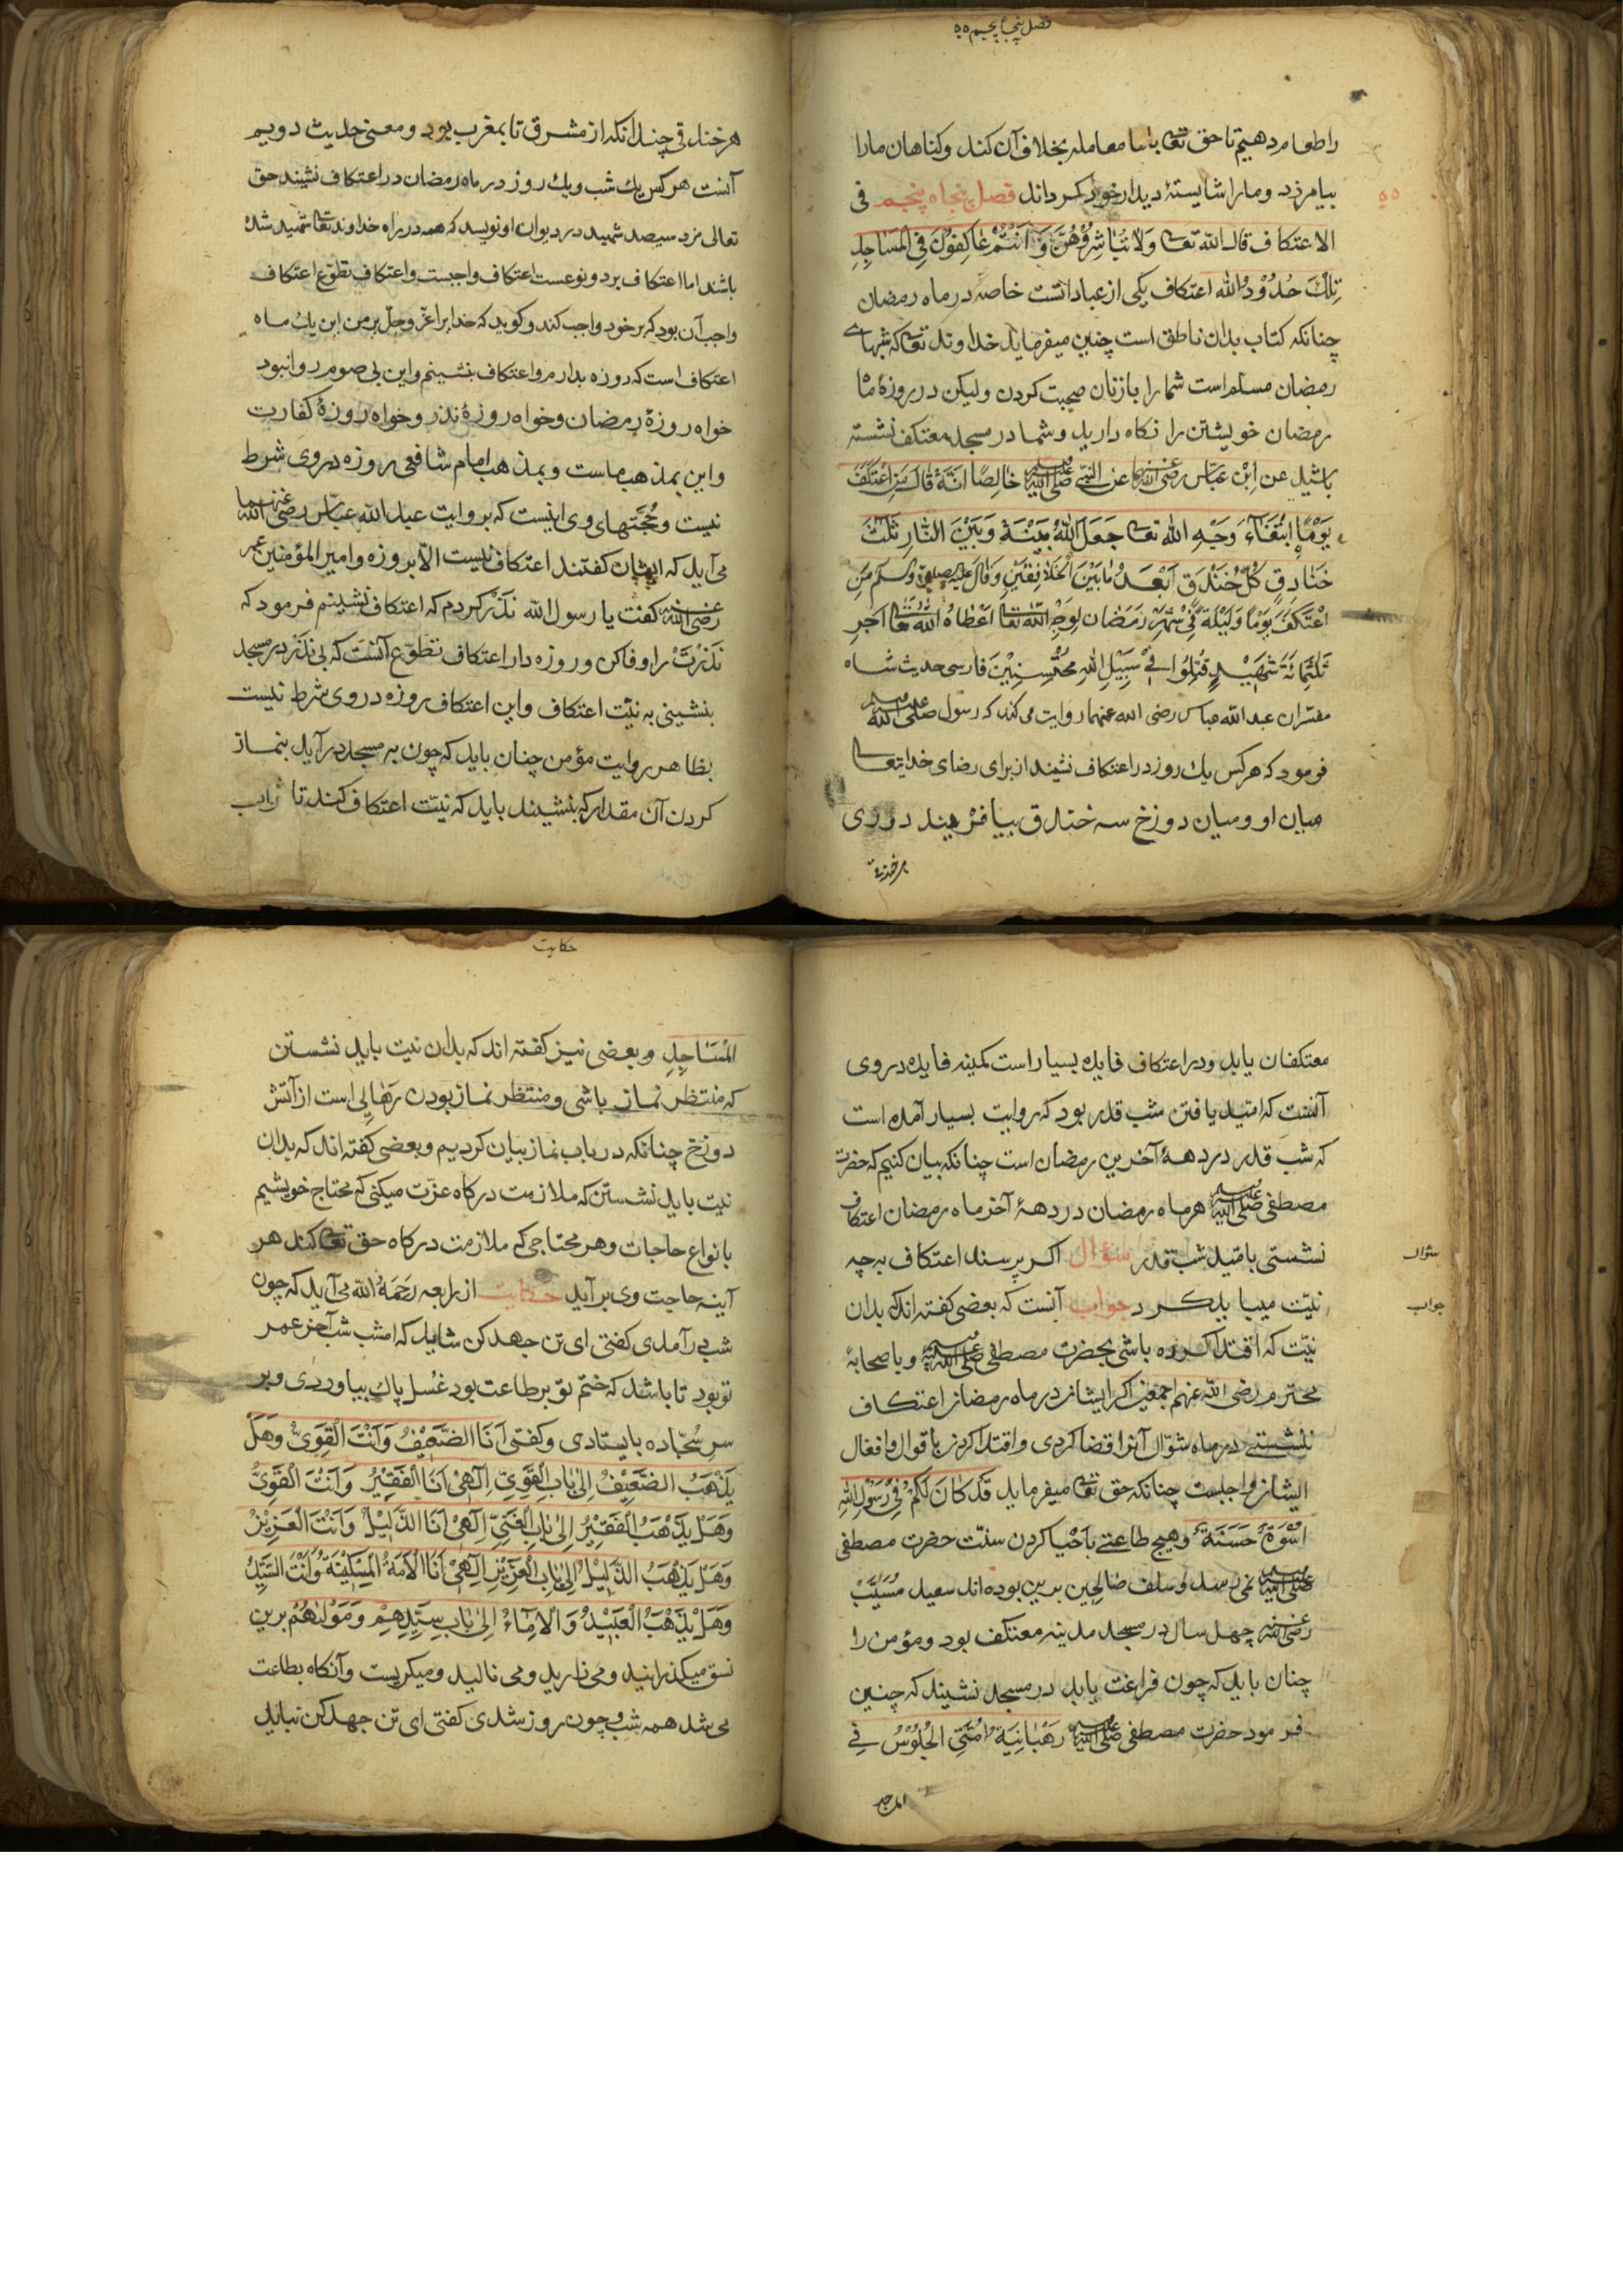 فصل پنجاه پنجم ٥٥
را طعام دهیم تا حق تعا با ما معامله بخلاف آن کند و کناهان ما را
٥٥
بیامرزد و ما را شایستهٔ دیدار خود کرداند فصل پنجاه پنجم فی
الاعتکاف قال الله تعا وَلَا تُبَاشِرُوْهُنَّ وَاَنْتُمْ عَاكِفُوْنَ فِی الْمَسَاجِدِ
تِلْكَ حُدُوْدُ الله اعتکاف یکی از عباداتست خاصه در ماه رمضان
چنانکه کتاب بدان ناطق است چنین میفرماید خداوند تعا که شبهای
رمضان مسلم است شما را با زنان صحبت کردن ولیکن در روزهٔ ما
رمضان خویشتن را نکاه دارید و شما در مسجد معتکف نشسته
باشید عن اِبْن عَبّاس رضی الله عن النبی صلی الله خَالِصًا انَّهُ قَالَ مَنِ اعْتَكَفَ
يَوْمًا اِبْتِغَآءَ وَجْهِ الله تعا جَعَلَ اللهُ بَيْنَهُ وَبَيْنَ النَّارِ ثَلٰثَ
خَنَادِقٍ كُلُّ خَنْدَقٍ اَبْعَدُ مَا بَيْنَ الْخَافِقَيْنِ وَقَالَ علیه وسلم مَنِ
اعْتَكَفَ يَوْمًا وَلَيْلَةً فِیْ شَهْرِ رَمَضَان لِوَجْهِ الله تعا اَعْطَاهُ اللهُ تعا اَجْرَ
ثَلٰثَمِائَةِ شَهِيْدٍ قُتِلُوْا فِیْ سَبِيْلِ اللهِ مُحْتَسِبِيْنَ فارسی حدیث شاه
مفسران عبد الله عباس رضی الله عنهما روایت می کند که رسول صلی الله علیه وسلم
فرمود که هر کس یك روز در اعتکاف نشیند از برای رضای خدایتعا
میان او و میان دوزخ سه خندق بیافریند دوری
هر خندقی
هر خندقی چندانکه از مشرق تا بمغرب بود و معنی حدیث دویم
آنست هر کس یك شب و یك روز در ماه رمضان در اعتکاف نشیند حق
تعالی مزد سیصد شهید در دیوان او نویسد که همه در راه خداوند تعا شهید شده
باشند اما اعتکاف بر دو نوعست اعتکاف واجبست و اعتکاف تطوّع اعتکاف
واجب آن بود که بر خود واجب کند و کوید که خدایرا عزّ وجلّ بر من این یك ماه
اعتکاف است که روزه بدارم و اعتکاف بنشینم و این بی صوم روا نبود
خواه روزهٔ رمضان و خواه روزهٔ نذر و خواه روزهٔ کفارت
و این بمذهب ماست و بمذهب امام شافعی روزه در وی شرط
نیست و حُجَّتهای وی اینست که بروایت عبد الله عبّاس رضی الله عنهما
می آید که ایشان کفتند اعتکاف نیست الّا بروزه و امیر المؤمنین عمر
رضی الله عنه کفت یا رسول الله نذر کردم که اعتکاف نشینم فرمود که
نَذْرَتْ را وفا کن و روزه دار اعتکاف تطوّع آنست که بی نذر در مسجد
بنشینی به نیّت اعتکاف و این اعتکاف روزه در وی شرط نیست
بظاهر روایت مؤمن چنان باید که چون به مسجد در آید بنماز
کردن آن مقدار که بنشیند باید که نیّت اعتکاف کند تا ثواب
معتکفان یابد و در اعتکاف فایده بسیار است کمینه فایده در وی
آنست که امّید یافتن شب قدر بود که روایت بسیار آمده است
که شب قدر در دههٔ آخرین رمضان است چنانکه بیان کنیم که حضرت
مصطفی صلی الله علیه وسلم هر ماه رمضان در دههٔ آخر ماه رمضان اعتکاف
نشستی بامّید شب قدر سؤال اکر پرسند اعتکاف به چه
سؤال
نیّت میباید کرد جواب آنست که بعضی کفته اند که بدان
جواب
نیّت که اقتدا کرده باشی بحضرت مصطفی صلی الله علیه وسلم و با صحابهٔ
محترم رضی الله عنهم اجمعین اکر ایشان در ماه رمضان اعتکاف
ننشستی در ماه شوّال آنرا قضا کردی و اقتدا کردن باقوال و افعال
ایشان واجبست چنانکه حق تعا میفرماید قَدْ كَانَ لَكُمْ فِیْ رَسُوْلِ اللهِ
اُسْوَةٌ حَسَنَةٌ و هیچ طاعتی بِاَحْیا کردن سنّت حضرت مصطفی
صلی الله علیه وسلم نمی رسد و سلف صالحین برین بوده اند سعید مُسَیَّبْ
رضی الله عنه چهل سال در مسجد مدینه معتکف بود و مؤمن را
چنان باید که چون فراغت یابد در مسجد نشیند که چنین
فرمود حضرت مصطفی صلی الله علیه وسلم رَهْبَانِيَةُ اُمَّتِی الْجُلُوْسُ فِی
المساجد
حکایت
الْمَسَاجِدِ و بعضی نیز کفته اند که بدان نیت باید نشستن
که منتظر نماز باشی و منتظر نماز بودن رَهَایی است از آتش
دوزخ چنانکه در باب نماز بیان کردیم و بعضی کفته اند که بدان
نیت باید نشستن که ملازمت درکاه عزّت میکنی که محتاج خویشیم
بانواع حاجات و هر محتاجی که ملازمت درکاه حق تعا کند هر
آینه حاجت وی بر آید حکایت از رابعه رَحَمَهُ الله می آید که چون
شب در آمدی کفتی ای تن جهد کن شاید که امشب شب آخر عمر
تو بود تا باشد که ختم تو بر طاعت بود غُسل پاك بیاوردی و بر
سرِ سُجّاده بایستادی و کفتی اَنَا الضَّعِيْفُ وَاَنْتَ الْقَوِیُّ وَهَلْ
يَذْهَبُ الضَّعِيْفُ اِلٰی بَابِ الْقَوِیِّ اِلٰهِیْ اَنَا الْفَقِيْرُ وَاَنْتَ الْقَوِیُّ
وَهَلْ يَذْهَبُ الْفَقِيْرُ اِلٰی بَابِ الْغَنِیِّ اِلٰهِیْ اَنَا الذَّلِيْلُ وَاَنْتَ الْعَزِيْزُ
وَهَلْ يَذْهَبُ الذَّلِيْلُ اِلٰی بَابِ الْعَزِيْزِ اِلٰهِیْ اَنَا الْاَمَةُ الْمِسْكِيْنَةُ وَاَنْتَ السَّيِّدُ
وَهَلْ يَذْهَبُ الْعَبِيْدُ وَالْاِمَآءُ اِلٰی بَابِ سَيِّدِهِمْ وَمَوْلٰهُمْ برین
نسق میکذرانید و می زارید و می نالید و میکریست و آنکاه بطاعت
می شد همه شب و چون روز شدی کفتی ای تن جهد کن نباید